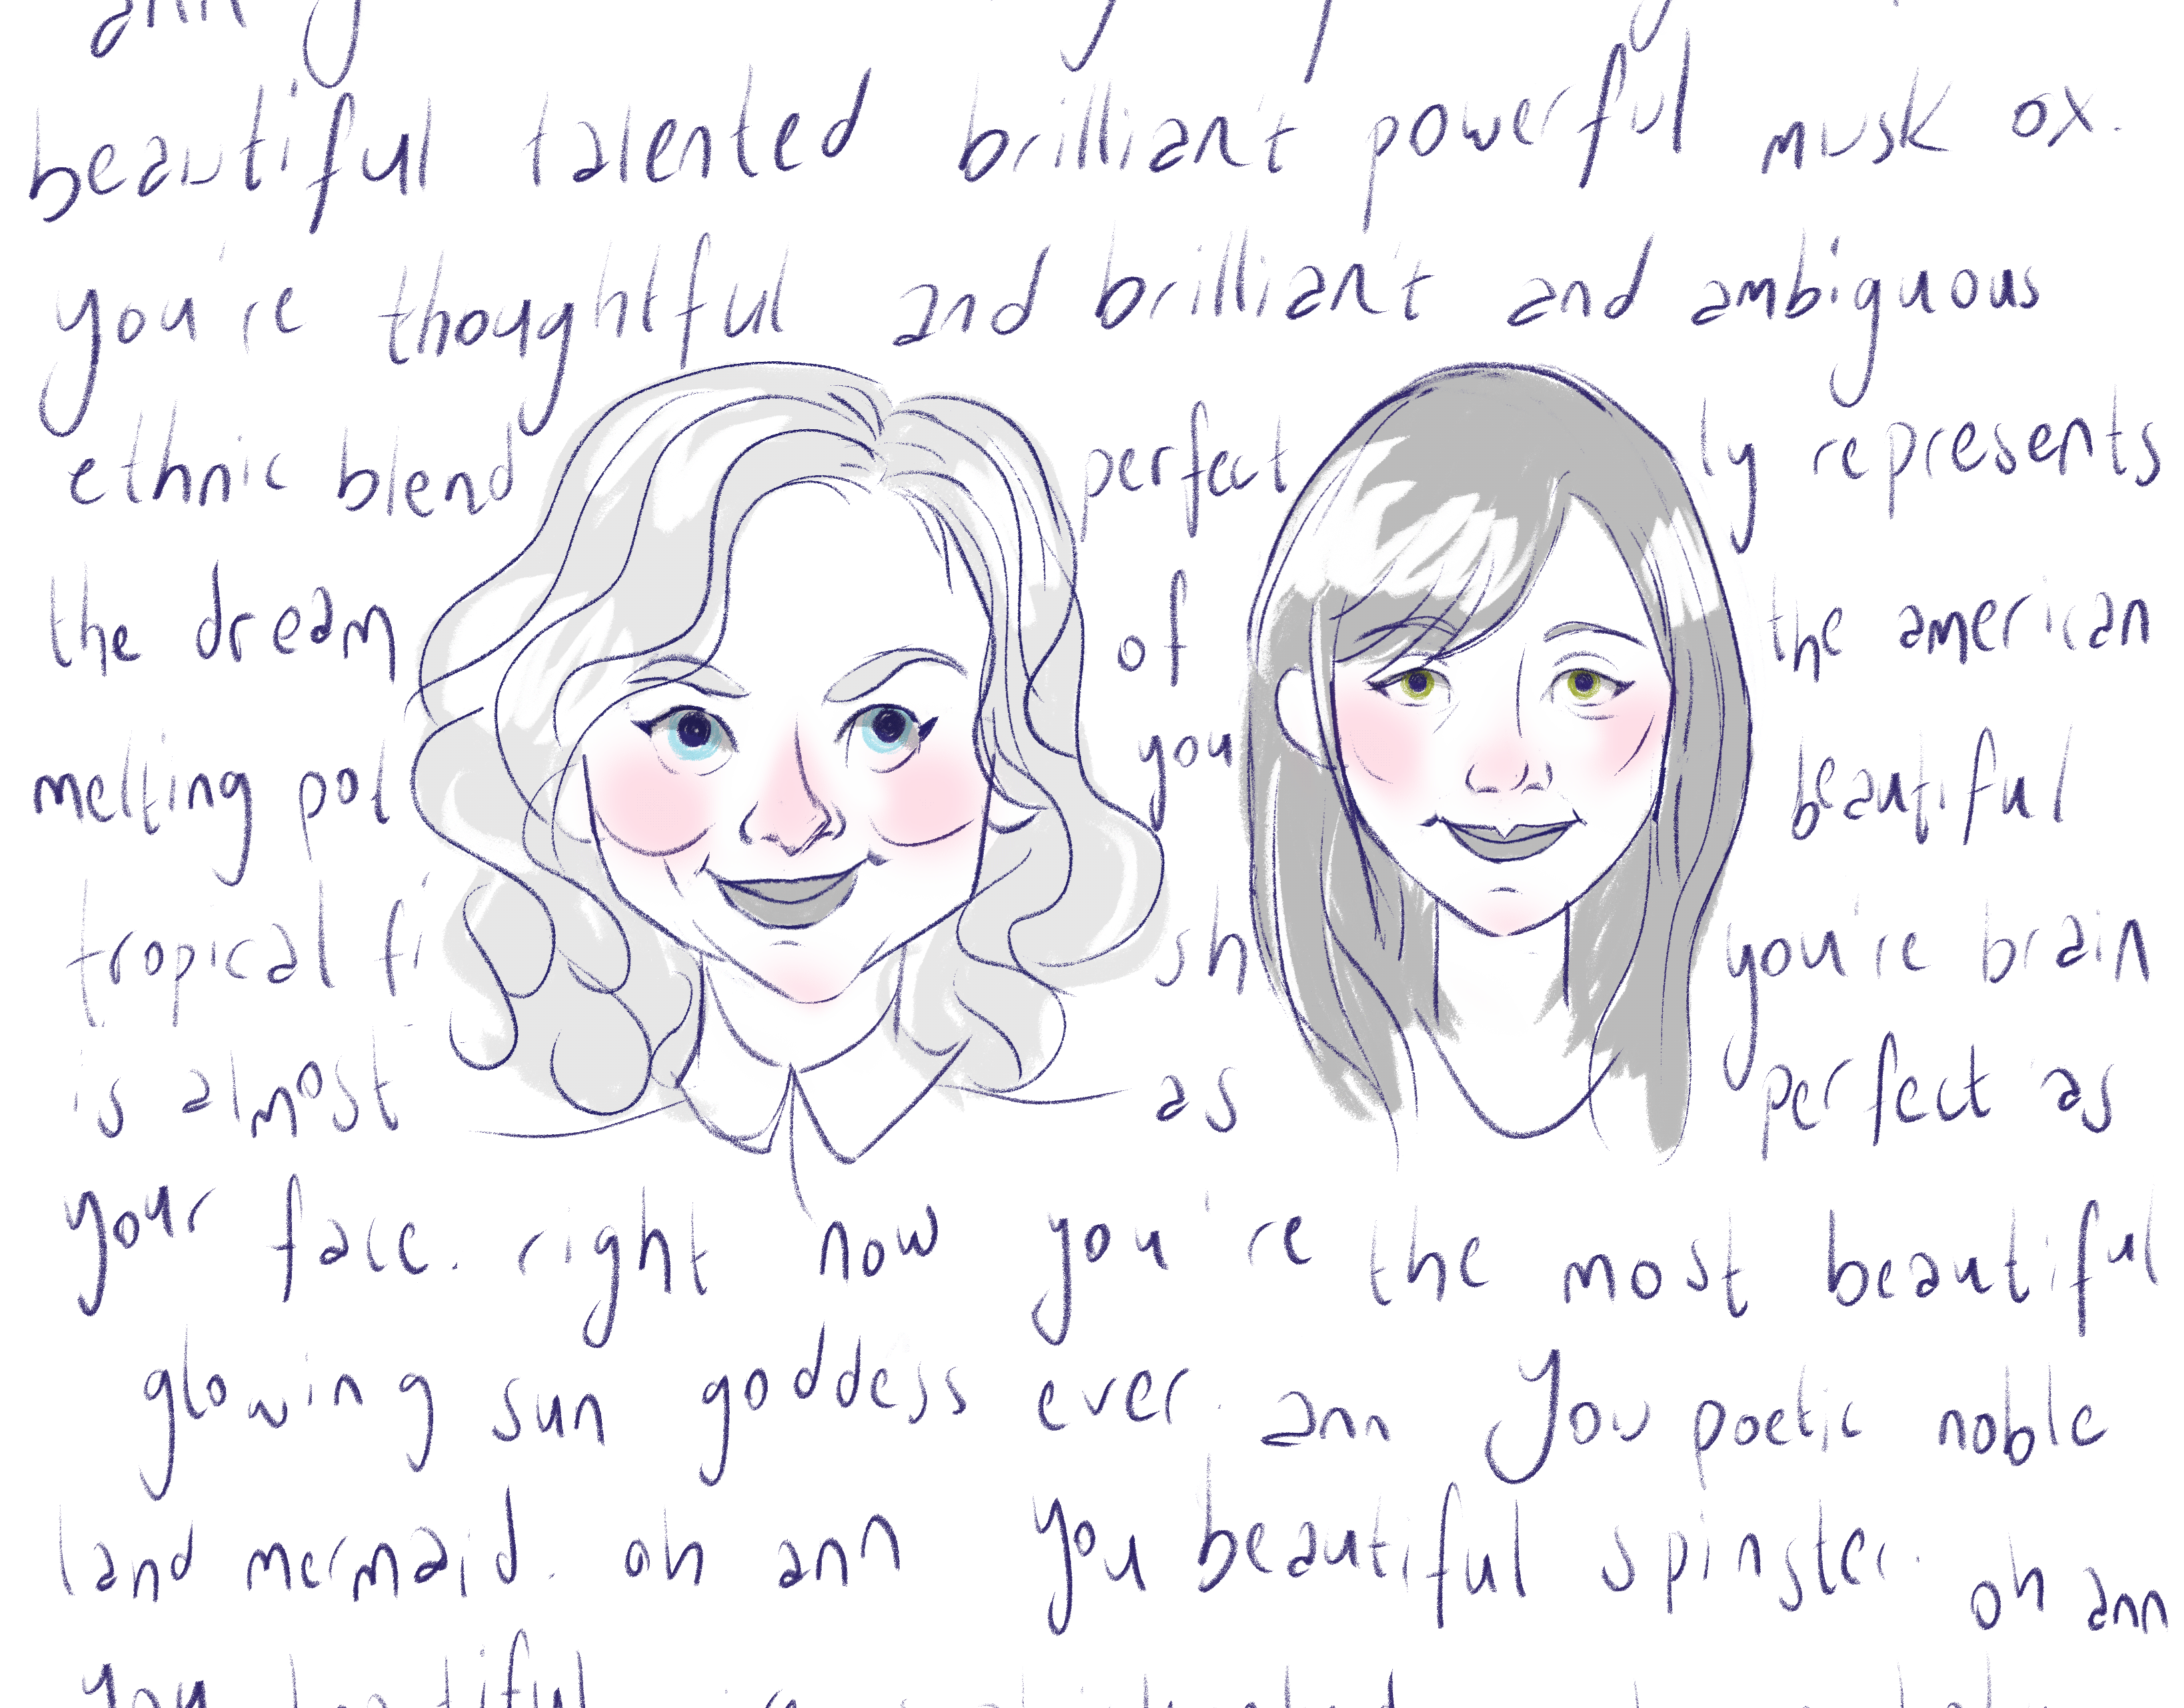 beautiful talented brillian't powerful musk ox.
you're thoughtful and brillian't and ambiguous
ethnic blend perfectly represents
the dream of the american
melting pot you beautiful
tropical fish you're brain
is almost as perfect as
your face. right now you're the most beautiful
glowing sun goddess ever. ann you poetic noble
land mermaid. oh ann you beautiful spinster. oh ann
you beautiful